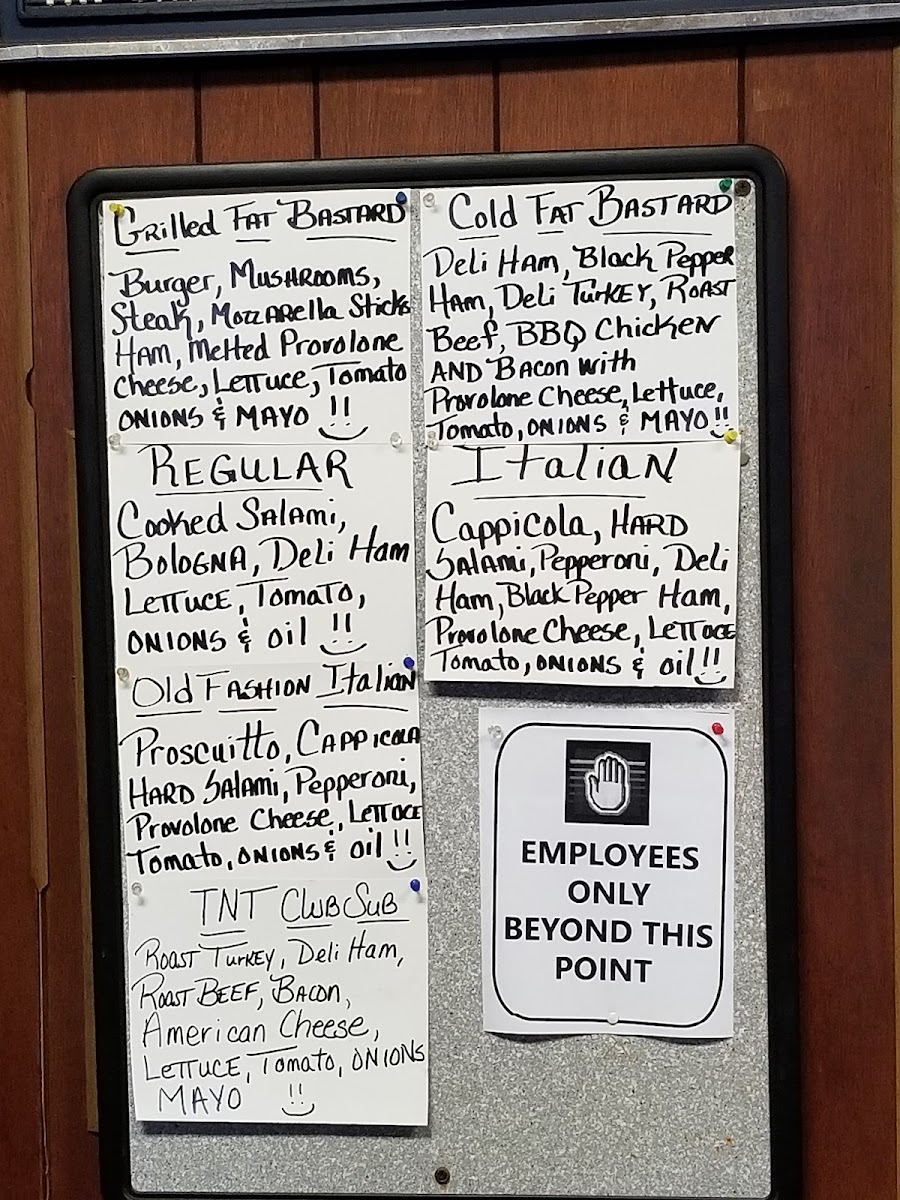 Grilled FAT BASTARD
Burger, MUSHROOMS,
Steak, Mozzarella Sticks
HAM, Melted Provolone
cheese, LETTUCE, Tomato
ONIONS & MAYO !!
Cold FAT BASTARD
Deli HAM, Black Pepper
HAM, Deli TURKEY, ROAST
Beef, BBQ ChicKEN
AND Bacon with
Provolone Cheese, Lettuce,
Tomato, ONIONS & MAYO!!
REGULAR
Cooked SALAMi,
BOLOGNA, Deli Ham
LETTUCE, TOMATO,
ONIONS & OIL !!
ITALIAN
Cappicola, HARD
SALAMI, Pepperoni, Deli
Ham, Black Pepper Ham,
Provolone Cheese, LETTUCE
Tomato, ONIONS & oil!!
Old FASHION Italian
Proscuitto, CAPPICOLA
HARD SALAMI, Pepperoni,
Provolone Cheese, LETTUCE
Tomato, ONIONS & oil!!
TNT CLUB SUB
ROAST TURKEY, Deli Ham,
ROAST BEEF, BACON,
American Cheese,
LETTUCE, Tomato, ONIONS
MAYO !!
EMPLOYEES
ONLY
BEYOND THIS
POINT